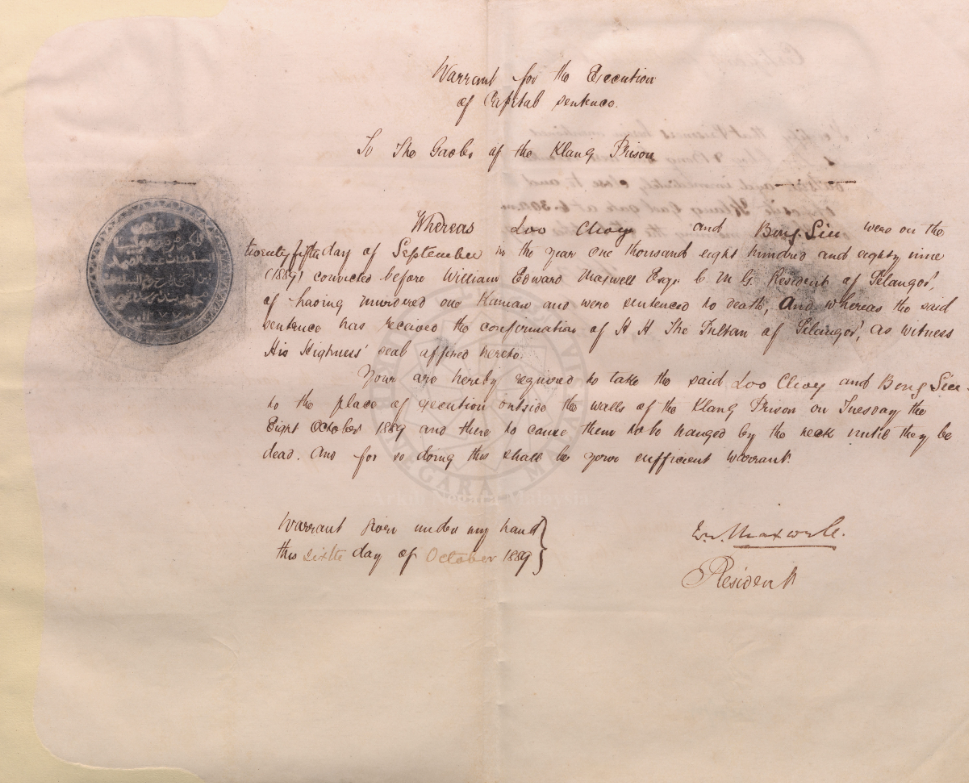 Warrant for the Execution
of Capital Sentence.
To The Gaoler of the Klang Prison
Whereas Loo Choy and Bong Siu were on the
twenty fifth day of September in the year one thousand eight hundred and eighty nine
(1889) convicted before William Edward Maxwell Esqr. C M G Resident of Selangor,
of having murdered one and were sentenced to death, And whereas the said
sentence has received the confirmation of H H The Sultan of Selangor, as witness
His Highness' seal affixed hereto.
Your are hereby required to take the said Loo Choy and Bong Siu
to the place of execution outside the walls of the Klang Prison on Tuesday the
Eight October 1889 and there to cause them to be hanged by the neck until they be
dead. And for so doing this shall be your sufficient warrant.
Warrant given under my hand
this sixth day of October 1889
W. Maxwell.
Resident
Arkib Negara Malaysia